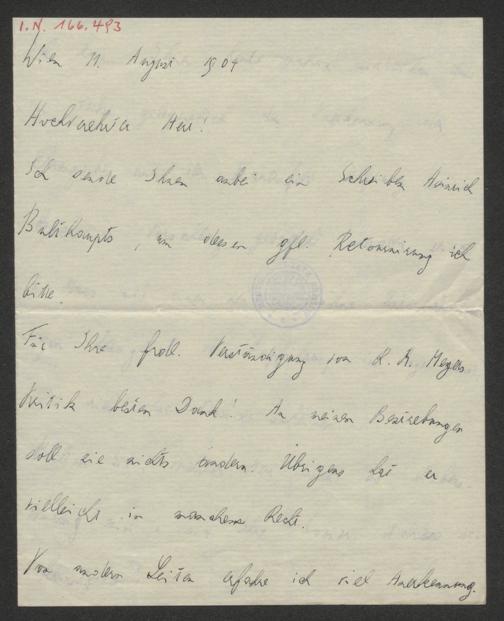 I.N. 166.493
Wien 11. August 1904
Hochverehrter Herr!
Ich sende Ihnen anbei ein Schreiben Heinrich
Bulthaupts, um dessen gfl. Retournirung ich
bitte.
Für Ihre frdl. Verständigung von R. M. Meyers
Kritik besten Dank! An meinen Bestrebungen
soll sie nichts ändern. Übrigens hat er
vielleicht in manchem Recht.
Von andern Seiten erfahre ich viel Anerkennung.